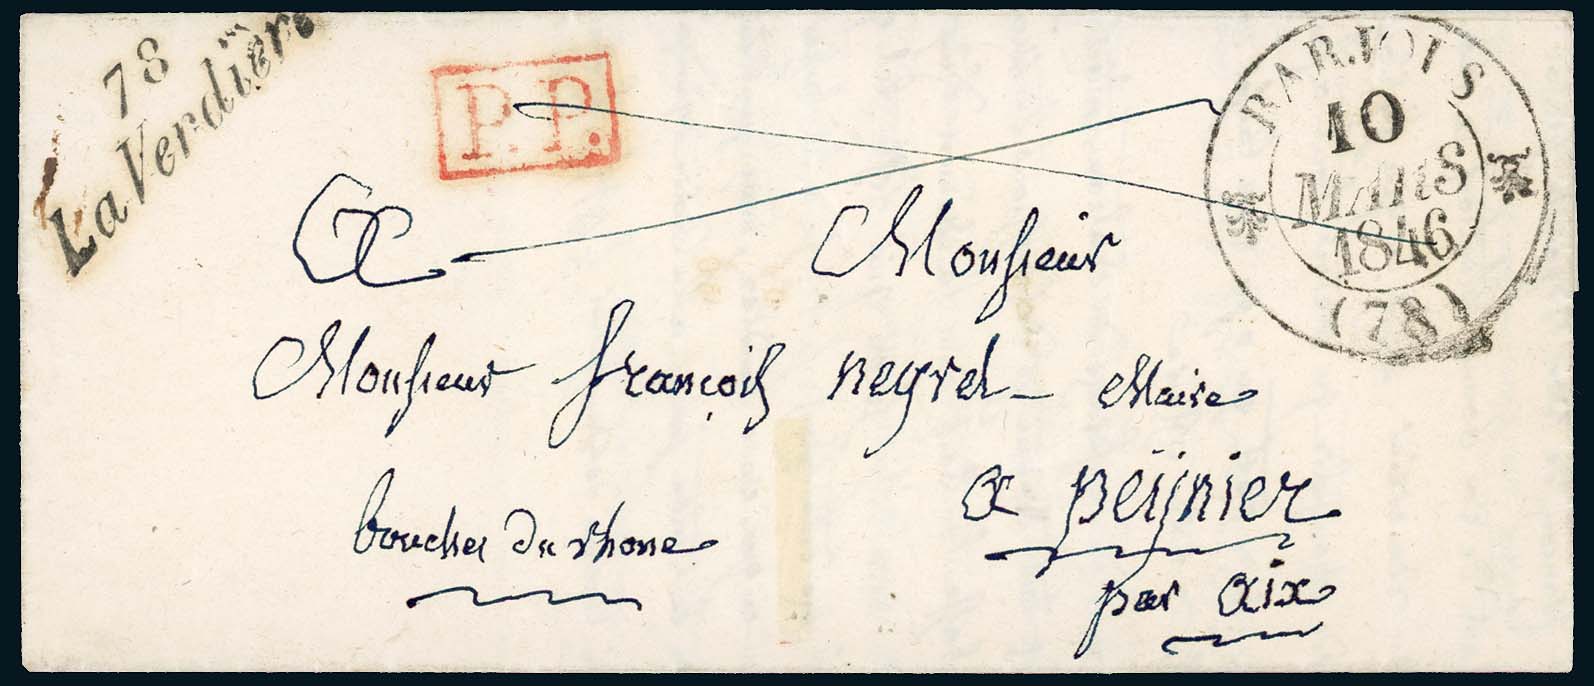 78
La Verdière
P.P.
BARJOLS
10
MARS
1846
(78)
A Monsieur
Monsieur françois negrel maire
a peijnier
bouches du rhone
par aix